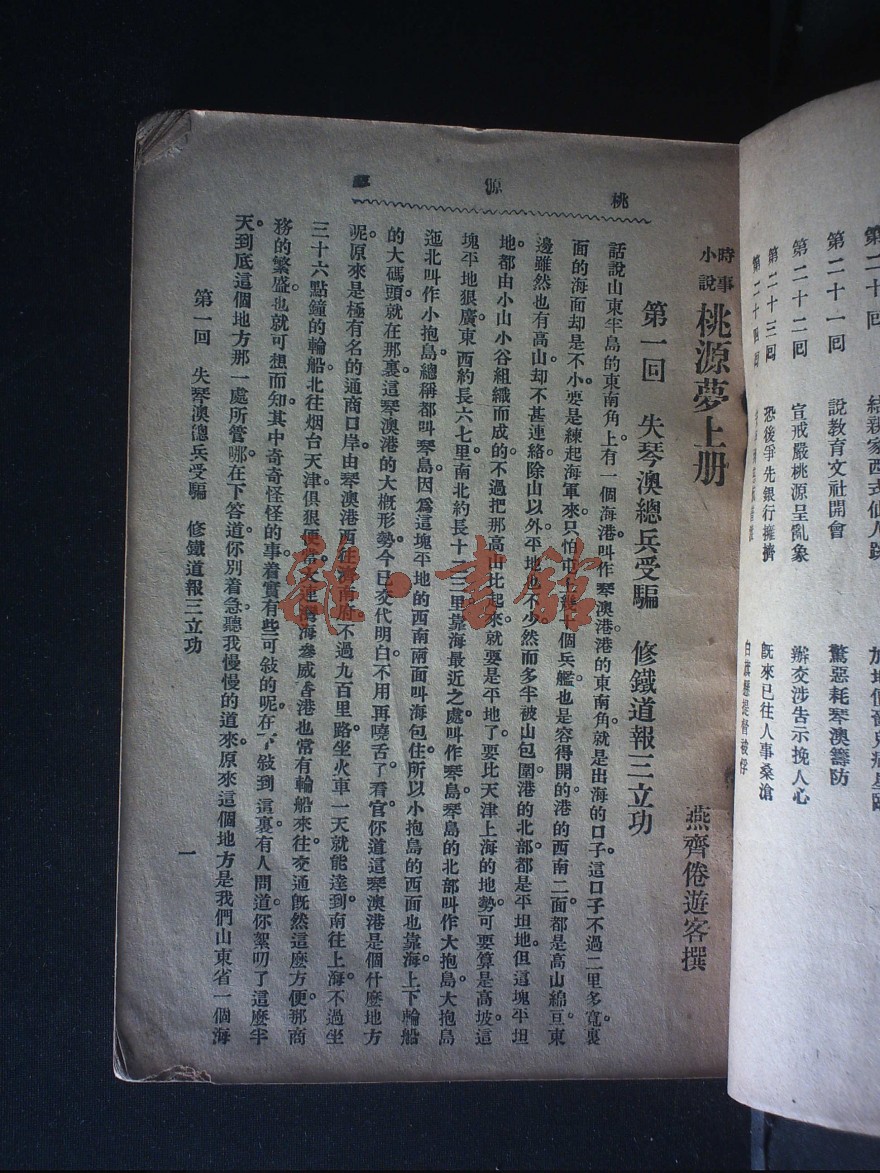 第二十回
結親家西式仙人跳
第二十一回
說教育文社開會
驚惡耗琴澳籌防
第二十二回
宣戒嚴桃源呈亂象
辦交涉告示挽人心
第二十三回
恐後爭先銀行擁擠
旣來已往人事桑滄
第二十四回
白旗懸提督被俘
桃源夢
時事小說
桃源夢上册
燕齊倦遊客撰
第一回 失琴澳總兵受騙 修鐵道報三立功
話說山東半島的東南角上有一個海港。叫作琴澳港。港的東南角。就是出海的口子。這口子不過二里多寬。裏
面的海面却是不小。要是練起海軍來。只怕屯上幾十個兵艦。也是容得開的。港的西南二面。都是高山綿亘。東
邊雖然也有高山。却不甚連絡。除山以外。平地也不少。然而多半被山包圍。港的北部。都是平坦地。但這塊平坦
地。都由小山小谷組織而成的。不過把那高山比起來。就要是平地了。要比天津上海的地勢。可要算是高坡。這
塊平地狠廣。東西約長六七里。南北約長十二三里。靠海最近之處。叫作琴島。琴島的北部。叫作大抱島。大抱島
迤北叫作小抱島。總稱都叫琴島。因爲這塊平地的西南兩面。叫海包住。所以小抱島的西面也靠海。上下輪船
的大碼頭就在那裏。這琴澳港的大槪形勢。今已交代明白。不用再嘵舌了。看官你道這琴澳港是個什麼地方
呢。原來是極有名的通商口岸。由琴澳港西往濟南府。不過九百里路。坐火車一天就能達到。南往上海。不過坐
三十六點鐘的輪船。北往烟台天津。俱狠便當。大連灣海參威香港。也常有輪船來往。交通旣然這麼方便。那商
務的繁盛。也就可想而知。其中奇奇怪怪的事。着實有些可敍的呢。在下敍到這裏。有人問道。你絮叨了這麼半
天。到底這個地方那一處所管哪。在下答道。你別着急。聽我慢慢的道來。原來這個地方。是我們山東省一個海
第一回 失琴澳總兵受騙 修鐵道報三立功
一
雜·書館